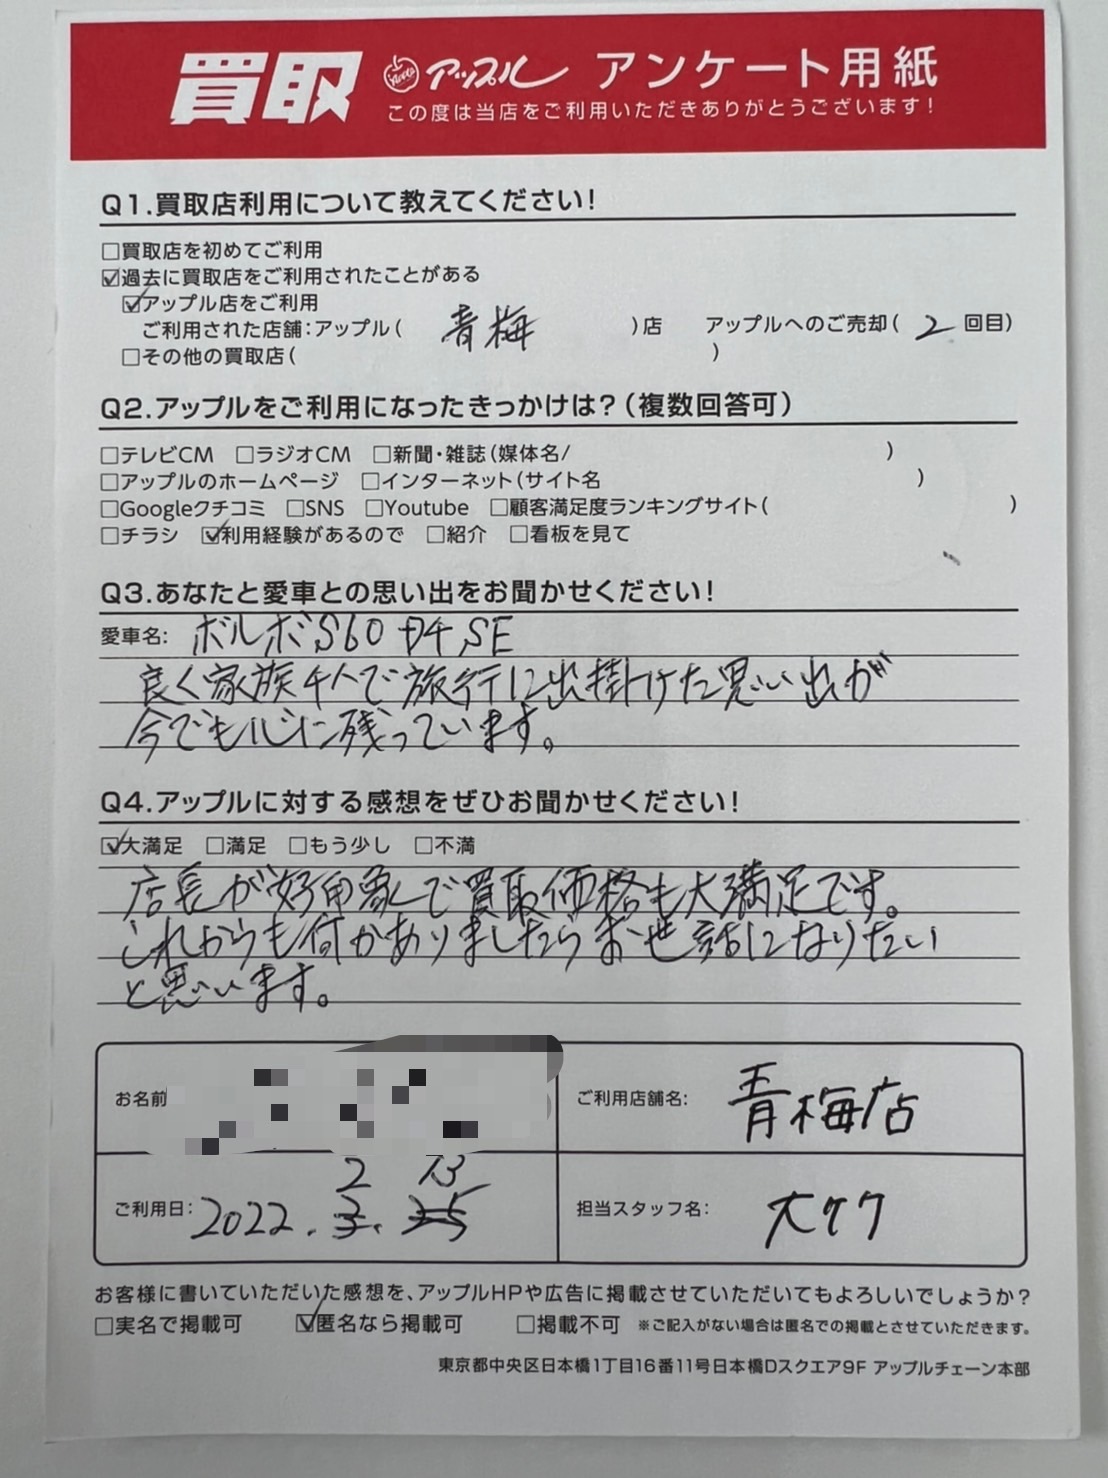 買取 Apple アップル アンケート用紙
この度は当店をご利用いただきありがとうございます!
Q1.買取店利用について教えてください!
□買取店を初めてご利用
☑過去に買取店をご利用されたことがある
☑アップル店をご利用
ご利用された店舗:アップル( 青梅 )店 アップルへのご売却( 2 回目)
□その他の買取店( )
Q2.アップルをご利用になったきっかけは?(複数回答可)
□テレビCM □ラジオCM □新聞・雑誌(媒体名/ )
□アップルのホームページ □インターネット(サイト名 )
□Googleクチコミ □SNS □Youtube □顧客満足度ランキングサイト( )
□チラシ ☑利用経験があるので □紹介 □看板を見て
Q3.あなたと愛車との思い出をお聞かせください!
愛車名: ボルボS60 D4 SE
良く家族4人で旅行に出掛けた思い出が
今でも心に残っています。
Q4.アップルに対する感想をぜひお聞かせください!
☑大満足 □満足 □もう少し □不満
店長が好印象で買取価格も大満足です。
これからも何かありましたらお世話になりたい
と思います。
お名前
ご利用店舗名: 青梅店
2 13
ご利用日: 2022.
担当スタッフ名: 大ケク
お客様に書いていただいた感想を、アップルHPや広告に掲載させていただいてもよろしいでしょうか?
□実名で掲載可 ☑匿名なら掲載可 □掲載不可 ※ご記入がない場合は匿名での掲載とさせていただきます。
東京都中央区日本橋1丁目16番11号日本橋Dスクエア9F アップルチェーン本部